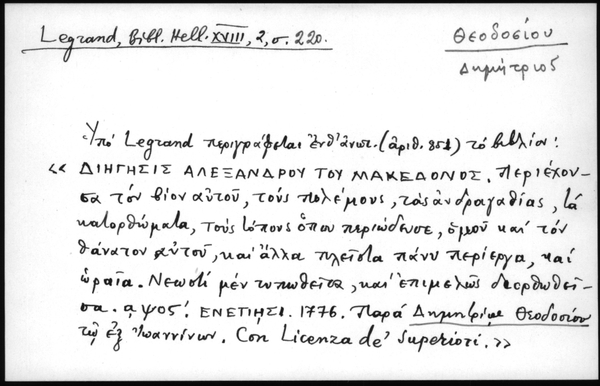 Legrand, Bibl. Hell. XVIII, 2, σ. 220.
Θεοδοσίου
Δημήτριος
Ὑπό Legrand περιγράφεται ἐνθ' ἀνωτ. (ἀριθ. 851) τό βιβλίον:
« ΔΙΗΓΗΣΙΣ ΑΛΕΞΑΝΔΡΟΥ ΤΟΥ ΜΑΚΕΔΟΝΟΣ. Περιέχου-
σα τόν βίον αὐτοῦ, τούς πολέμους, τάς ἀνδραγαθίας, τά
κατορθώματα, τούς τόπους ὁποῦ περιώδευσε, ὁμοῦ καί τόν
θάνατον αὐτοῦ, καί ἄλλα πλεῖστα πάνυ περίεργα, καί
ὡραῖα. Νεωστί μέν τυπωθεῖσα, καί ἐπιμελῶς διορθωθεῖ-
σα. αψος'. ΕΝΕΤΙΗΣΙ. 1776. Παρά Δημητρίῳ Θεοδοσίου
τῷ ἐξ Ἰωαννίνων. Con Licenza de' Superiori. »